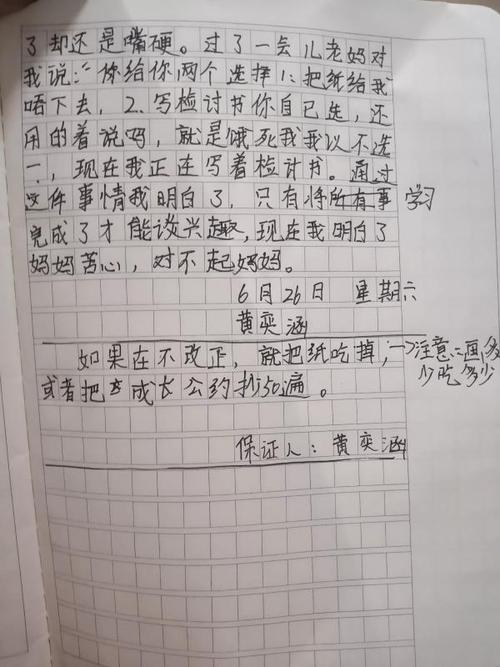 了却还是嘴硬。过了一会儿老妈对
我说:“你给你两个选择1:把纸给我
唔下去，2、写检讨书你自己选，还
用的着说吗，就是饿死我我以不选
一，现在我正在写着检讨书。通过
这件事情我明白了，只有将所有事 学习
完成了才能谈兴趣，现在我明白了
妈妈苦心，对不起妈妈。
6月26日 星期六
黄奕涵
如果在不改正，就把纸吃掉，→注意:画多
少吃多少
或者把 成长公约抄50遍。
保证人：黄奕涵